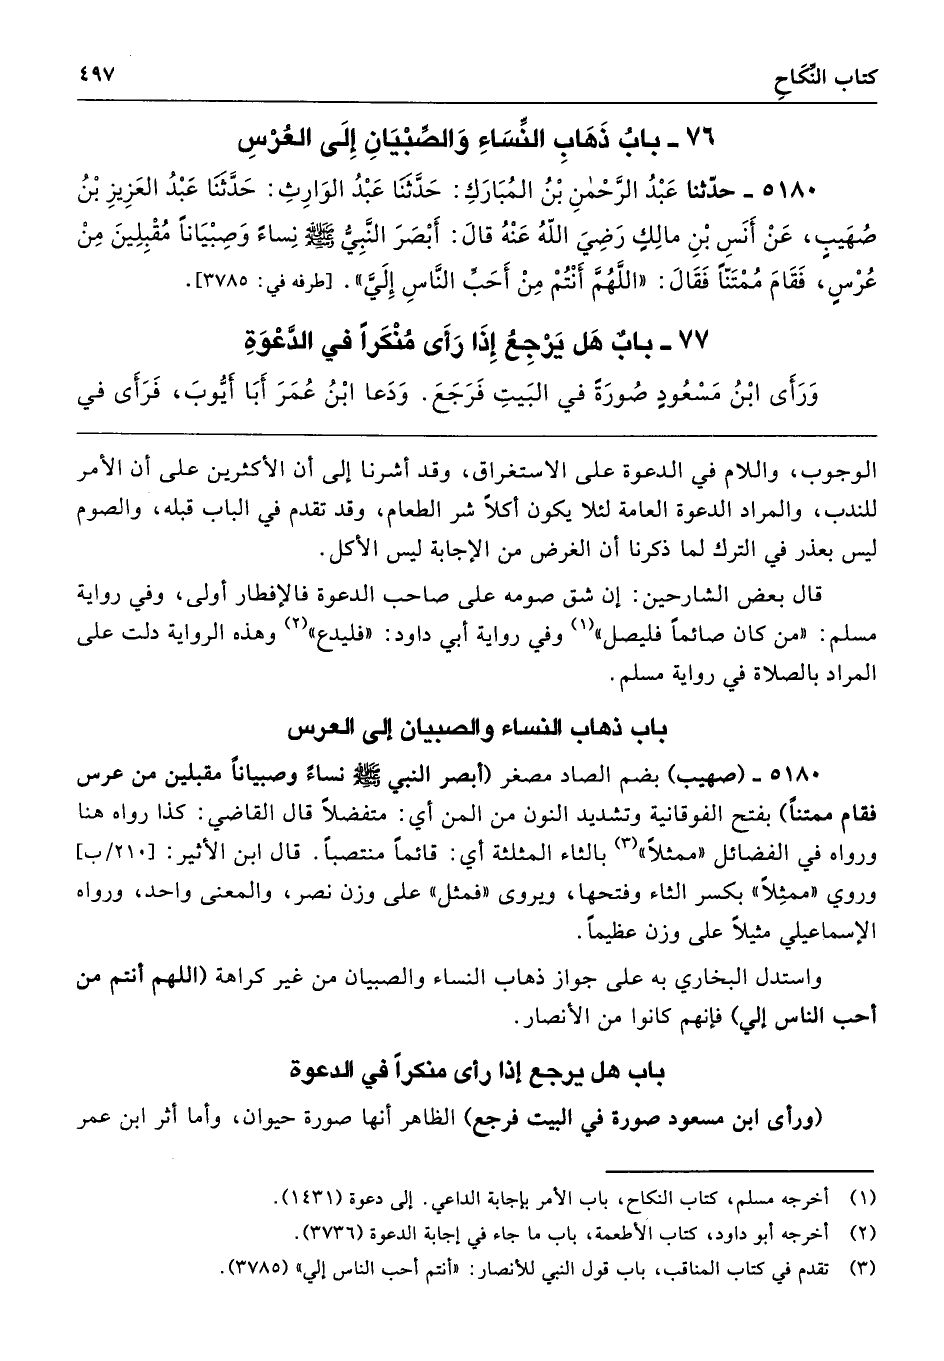 كتاب النِّكَاحِ ٤٩٧
٧٦ ـ بابُ ذَهَابِ النِّسَاءِ وَالصِّبْيَانِ إِلَى العُرْسِ
٥١٨٠ ـ حدّثنا عَبْدُ الرَّحْمٰنِ بْنُ المُبَارَكِ: حَدَّثَنَا عَبْدُ الوَارِثِ: حَدَّثَنَا عَبْدُ العَزِيزِ بْنُ
صُهَيبٍ، عَنْ أَنَسِ بْنِ مالِكٍ رَضِيَ اللّهُ عَنْهُ قالَ: أَبْصَرَ النَّبِيُّ ﷺ نِساءً وَصِبْيَاناً مُقْبِلِينَ مِنْ
عُرْسٍ، فَقَامَ مُمْتَنّاً فَقَالَ: «اللَّهُمَّ أَنْتُمْ مِنْ أَحَبِّ النَّاسِ إِلَيَّ». [طرفه في: ٣٧٨٥].
٧٧ ـ بابٌ هَل يَرْجِعُ إِذَا رَأَى مُنْكَراً في الدَّعْوَةِ
وَرَأَى ابْنُ مَسْعُودٍ صُورَةً في البَيتِ فَرَجَعَ. وَدَعا ابْنُ عُمَرَ أَبَا أَيُّوبَ، فَرَأَى في
الوجوب، واللام في الدعوة على الاستغراق، وقد أشرنا إلى أن الأكثرين على أن الأمر
للندب، والمراد الدعوة العامة لئلا يكون أكلاً شر الطعام، وقد تقدم في الباب قبله، والصوم
ليس بعذر في الترك لما ذكرنا أن الغرض من الإجابة ليس الأكل.
قال بعض الشارحين: إن شق صومه على صاحب الدعوة فالإفطار أولى، وفي رواية
مسلم: «من كان صائماً فليصل»(١) وفي رواية أبي داود: «فليدع»(٢) وهذه الرواية دلت على
المراد بالصلاة في رواية مسلم.
باب ذهاب النساء والصبيان إلى العرس
٥١٨٠ ـ (صهيب) بضم الصاد مصغر (أبصر النبي ﷺ نساءً وصبياناً مقبلين من عرس
فقام ممتناً) بفتح الفوقانية وتشديد النون من المن أي: متفضلاً قال القاضي: كذا رواه هنا
ورواه في الفضائل «ممثلاً»(٣) بالثاء المثلثة أي: قائماً منتصباً. قال ابن الأثير: [٢١٠/ب]
وروي «ممثِلاً» بكسر الثاء وفتحها، ويروى «فمثل» على وزن نصر، والمعنى واحد، ورواه
الإسماعيلي مثيلاً على وزن عظيماً.
واستدل البخاري به على جواز ذهاب النساء والصبيان من غير كراهة (اللهم أنتم من
أحب الناس إلي) فإنهم كانوا من الأنصار.
باب هل يرجع إذا رأى منكراً في الدعوة
(ورأى ابن مسعود صورة في البيت فرجع) الظاهر أنها صورة حيوان، وأما أثر ابن عمر
(١) أخرجه مسلم، كتاب النكاح، باب الأمر بإجابة الداعي. إلى دعوة (١٤٣١).
(٢) أخرجه أبو داود، كتاب الأطعمة، باب ما جاء في إجابة الدعوة (٣٧٣٦).
(٣) تقدم في كتاب المناقب، باب قول النبي للأنصار: «أنتم أحب الناس إلي» (٣٧٨٥).